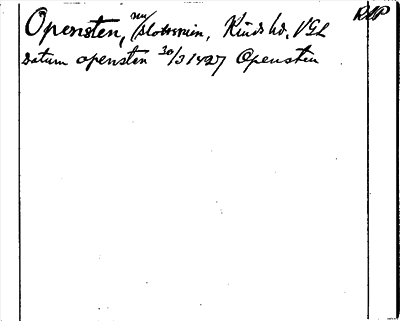 RAP
Opensten, (slottsruin, Kinds hd, VGL
Datum opensten 30/3 1427 Opensten